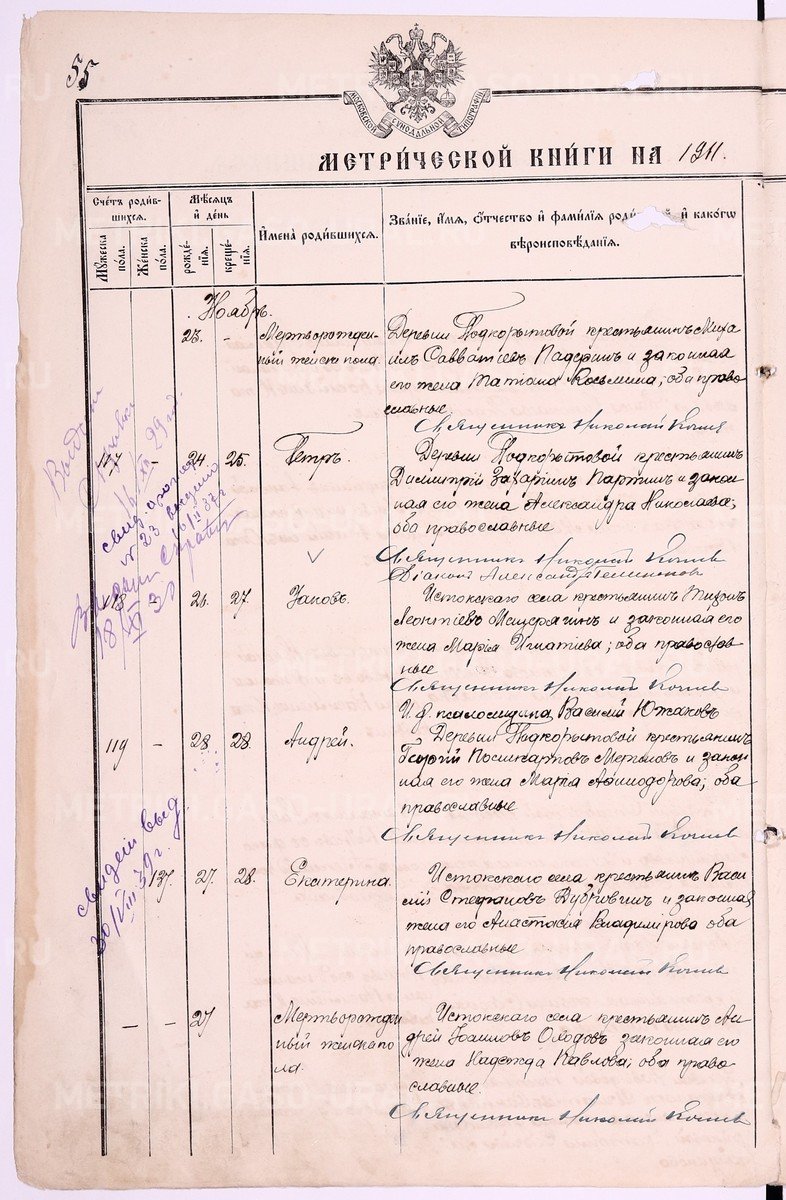 55
МОСКОВСКОЙ СѴНОДАЛЬНОЙ ТИПОГРАФІИ
МЕТРИ́ЧЕСКОЙ КНИ́ГИ НА 1911.
Сче́тъ роди́в-
шихся.
Мѣ́сяцъ
и҆ де́нь
И҆мена̀ роди́вшихся.
Зва́нїе, и҆́мя, ѻ҆́тчество и҆ фами́лїя роди й и҆ како́гѡ
вѣроисповѣ́данїя.
Мꙋ́жеска по́ла.
Же́нска по́ла.
рожде́нїя.
креще́нїя.
Ноябрь.
23. -
Мертворожден-
ный женска пола.
Деревни Подкорытовой крестьянинъ Миха
илъ Савватіевъ Падеринъ и законная
его жена Татіана Козьмина; оба право
славные
Священникъ Николай
117 - 24. 25. Петръ.
Деревни Подкорытовой крестьянинъ
Димитрій Захаринъ Партинъ и закон
ная его жена Александра Николаева;
оба православные
Священникъ Николай
Діаконъ Александръ
118 - 26. 27. Іаковъ.
Истокскаго села крестьянинъ Тихонъ
Леонтіевъ Мещерягинъ и законная его
жена Марія Игнатіева; оба православ
ные
Священникъ Николай
И. д. псаломщика Василій Южаковъ
119 - 28. 28. Андрей.
Деревни Подкорытовой крестьянинъ
Георгій и закон
ная его жена Марѳа оба
православные
Священникъ Николай
137. 27. 28. Екатерина.
Истокскаго села крестьянинъ Васи
лій Стефановъ Дубровинъ и законная
жена его Анастасія Владимірова оба
православные
Священникъ Николай
- - 27
Мертворожден
ный женска по
ла.
Истокскаго села крестьянинъ Ан
дрей законная его
жена Надежда Павлова; оба право-
славные.
Священникъ Николай
Выдана
справка
16/XII 29 год.
№ 23 выдано
16/II 37 г
18/XI 30
свидет выд
30/VIII 39 г.